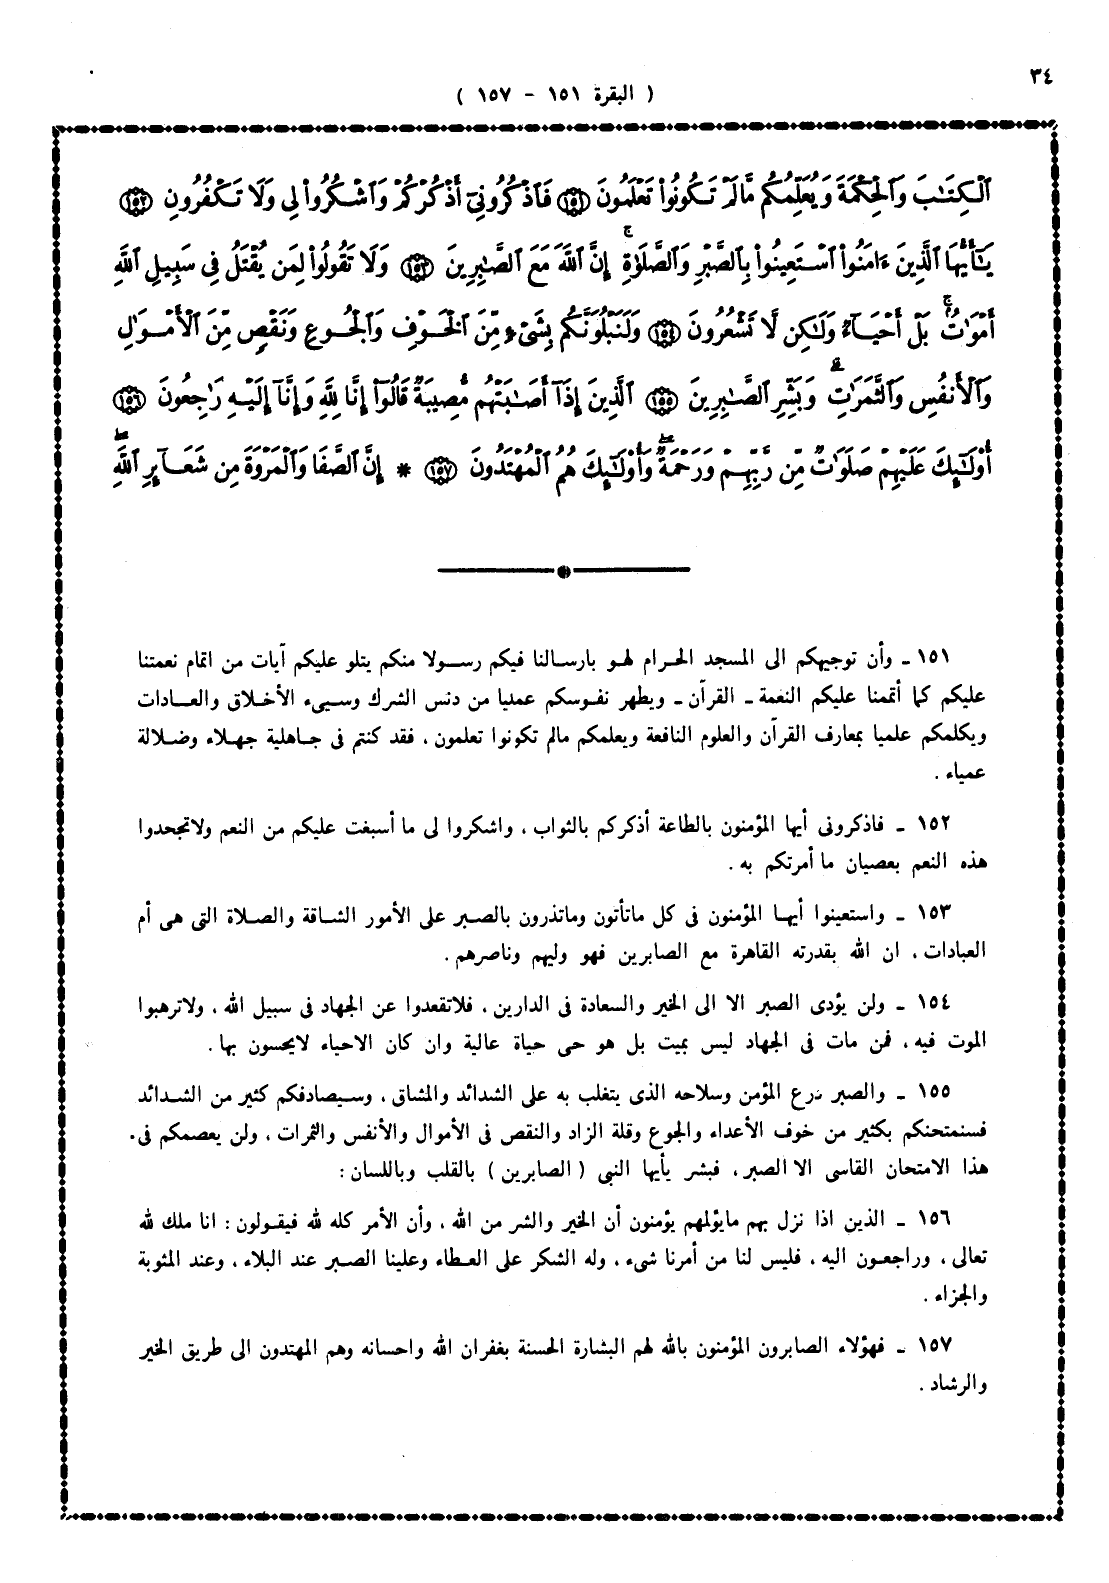 ٣٤
( البقرة ١٥١ - ١٥٧ )
ٱلْكِتَٰبَ وَٱلْحِكْمَةَ وَيُعَلِّمُكُم مَّالَمْ تَكُونُوا۟ تَعْلَمُونَ ١٥١ فَٱذْكُرُونِىٓ أَذْكُرْكُمْ وَٱشْكُرُوا۟ لِى وَلَا تَكْفُرُونِ ١٥٢
يَٰٓأَيُّهَا ٱلَّذِينَ ءَامَنُوا۟ ٱسْتَعِينُوا۟ بِٱلصَّبْرِ وَٱلصَّلَوٰةِ ۚ إِنَّ ٱللَّهَ مَعَ ٱلصَّٰبِرِينَ ١٥٣ وَلَا تَقُولُوا۟ لِمَن يُقْتَلُ فِى سَبِيلِ ٱللَّهِ
أَمْوَٰتٌۢ ۚ بَلْ أَحْيَآءٌ وَلَٰكِن لَّا تَشْعُرُونَ ١٥٤ وَلَنَبْلُوَنَّكُم بِشَىْءٍ مِّنَ ٱلْخَوْفِ وَٱلْجُوعِ وَنَقْصٍ مِّنَ ٱلْأَمْوَٰلِ
وَٱلْأَنفُسِ وَٱلثَّمَرَٰتِ ۗ وَبَشِّرِ ٱلصَّٰبِرِينَ ١٥٥ ٱلَّذِينَ إِذَآ أَصَٰبَتْهُم مُّصِيبَةٌ قَالُوٓا۟ إِنَّا لِلَّهِ وَإِنَّآ إِلَيْهِ رَٰجِعُونَ ١٥٦
أُو۟لَٰٓئِكَ عَلَيْهِمْ صَلَوَٰتٌ مِّن رَّبِّهِمْ وَرَحْمَةٌ ۖ وَأُو۟لَٰٓئِكَ هُمُ ٱلْمُهْتَدُونَ ١٥٧ * إِنَّ ٱلصَّفَا وَٱلْمَرْوَةَ مِن شَعَآئِرِ ٱللَّهِ ۖ
١٥١ - وأن توجيهكم الى المسجد الحرام لهو بارسالنا فيكم رسولا منكم يتلو عليكم آيات من اتمام نعمتنا
عليكم كما أتممنا عليكم النعمة - القرآن - ويطهر نفوسكم عمليا من دنس الشرك وسيىء الأخلاق والعادات
ويكلمكم علميا بمعارف القرآن والعلوم النافعة ويعلمكم مالم تكونوا تعلمون ، فقد كنتم فى جاهلية جهلاء وضلالة
عمياء .
١٥٢ - فاذكرونى أيها المؤمنون بالطاعة أذكركم بالثواب ، واشكروا لى ما أسبغت عليكم من النعم ولاتجحدوا
هذه النعم بعصيان ما أمرتكم به .
١٥٣ - واستعينوا أيها المؤمنون فى كل ماتأتون وماتذرون بالصبر على الأمور الشاقة والصلاة التى هى أم
العبادات ، ان الله بقدرته القاهرة مع الصابرين فهو وليهم وناصرهم .
١٥٤ - ولن يؤدى الصبر الا الى الخير والسعادة فى الدارين ، فلاتقعدوا عن الجهاد فى سبيل الله ، ولاترهبوا
الموت فيه ، فمن مات فى الجهاد ليس بميت بل هو حى حياة عالية وان كان الاحياء لايحسون بها .
١٥٥ - والصبر درع المؤمن وسلاحه الذى يتغلب به على الشدائد والمشاق ، وسيصادفكم كثير من الشدائد
فسنمتحنكم بكثير من خوف الأعداء والجوع وقلة الزاد والنقص فى الأموال والأنفس والثمرات ، ولن يعصمكم فى
هذا الامتحان القاسى الا الصبر ، فبشر يأيها النبى ( الصابرين ) بالقلب وباللسان :
١٥٦ - الذين اذا نزل بهم مايؤلمهم يؤمنون أن الخير والشر من الله ، وأن الأمر كله لله فيقولون : انا ملك لله
تعالى ، وراجعون اليه ، فليس لنا من أمرنا شىء ، وله الشكر على العطاء وعلينا الصبر عند البلاء ، وعند المثوبة
والجزاء .
١٥٧ - فهؤلاء الصابرون المؤمنون بالله لهم البشارة الحسنة بغفران الله واحسانه وهم المهتدون الى طريق الخير
والرشاد .